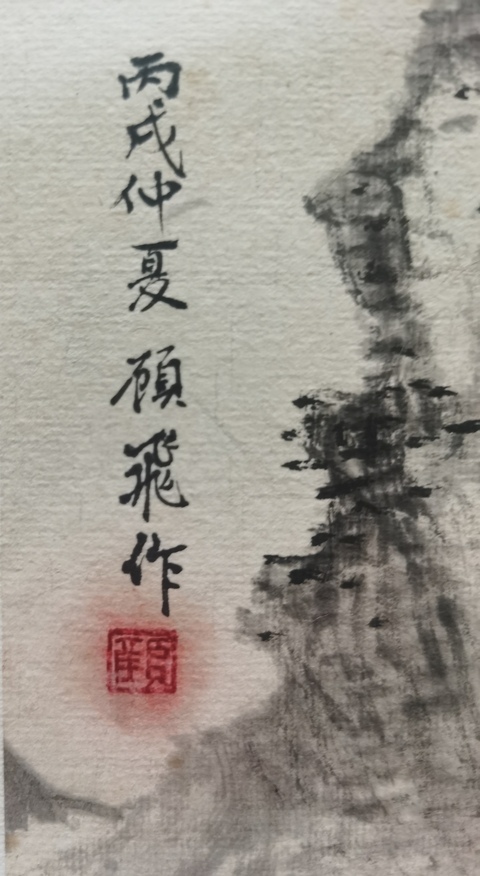 丙戌仲夏 顾飛作
顧